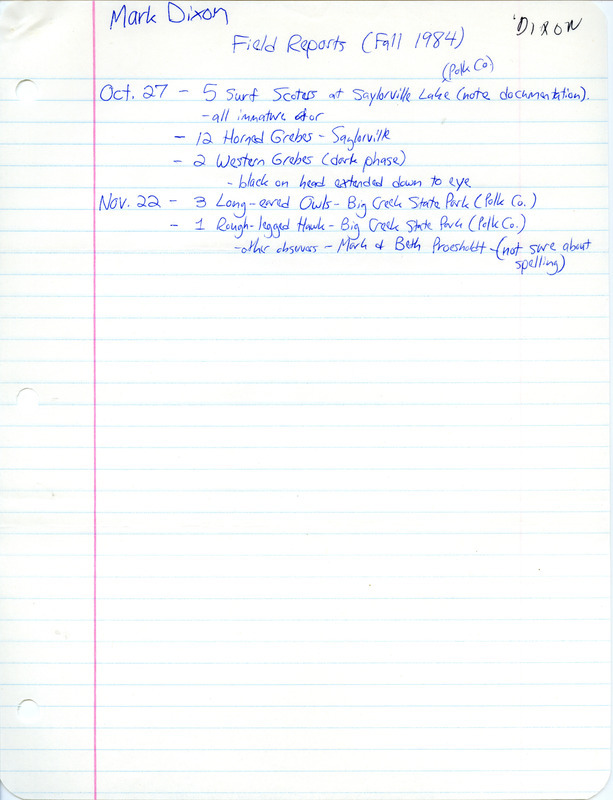 Mark Dixon
'DIXON
Field Reports (Fall 1984)
(Polk Co)
Oct. 27 - 5 Surf Scoters at Saylorville Lake (note documentation).
- all immature &/or
- 12 Horned Grebes - Saylorville
- 2 Western Grebes (dark phase)
- black on head extended down to eye
Nov. 22 - 3 Long-eared Owls - Big Creek State Park (Polk Co.)
- 1 Rough-legged Hawk - Big Creek State Park (Polk Co.)
- other observers - Mark & Beth Proescholdt - (not sure about
spelling)